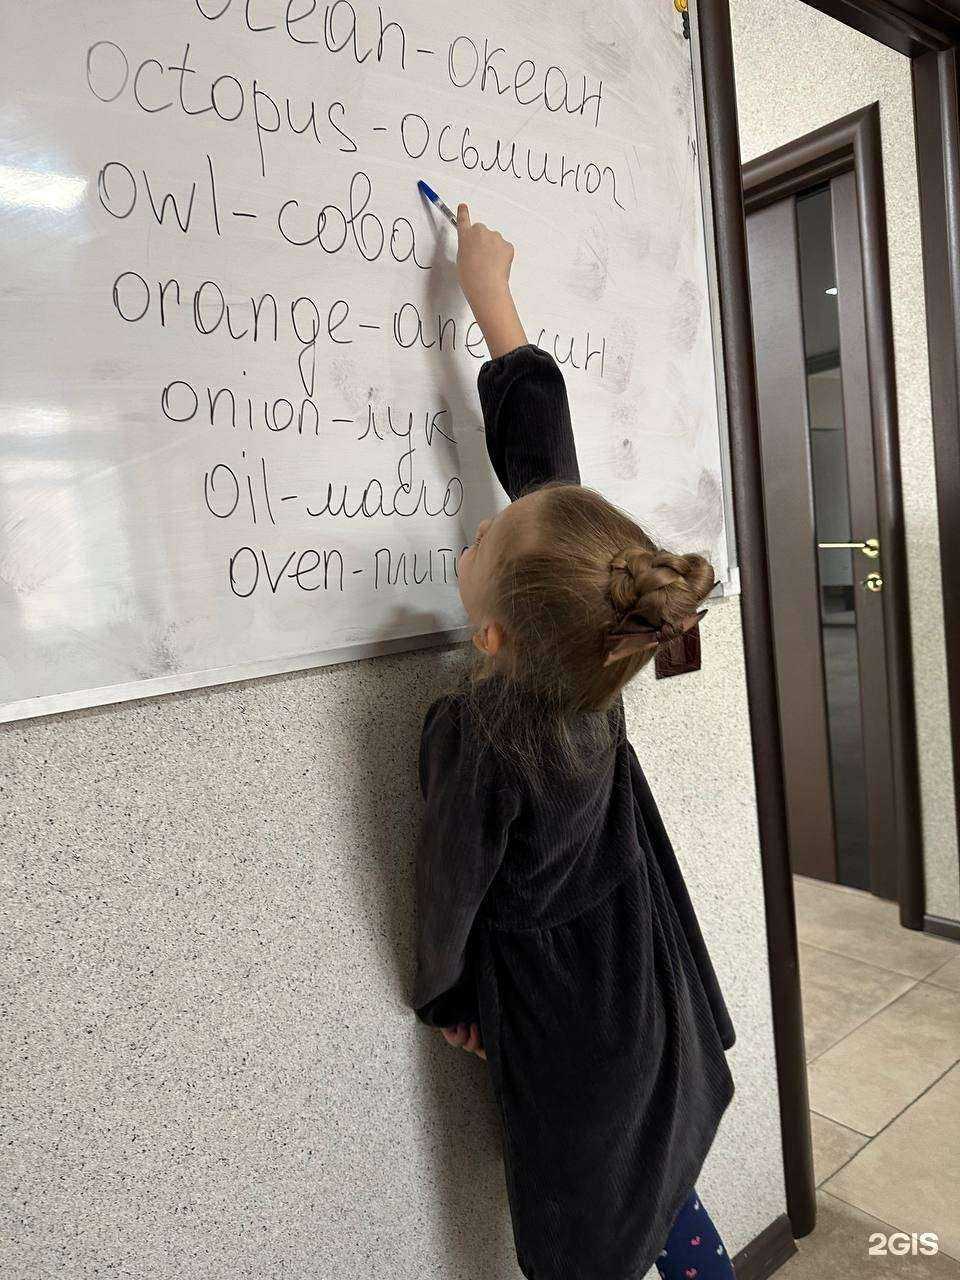 ocean-океан
octopus-осьминог
owl-сова
orange-
onion-лук
oil-масло
oven-
2GIS